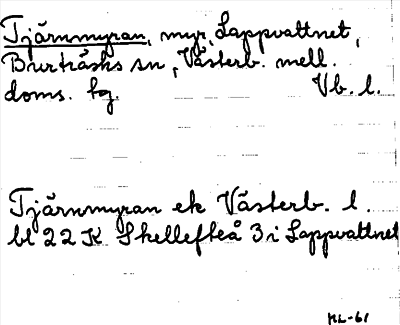 Tjärnmyran, myr, Lappvattnet,
Burträsks sn, Västerb. mell.
doms. tg. Vb. l.
Tjärnmyran ek Västerb. l.
bl 22 K Skellefteå 3 i Lappvattnet
HL-61